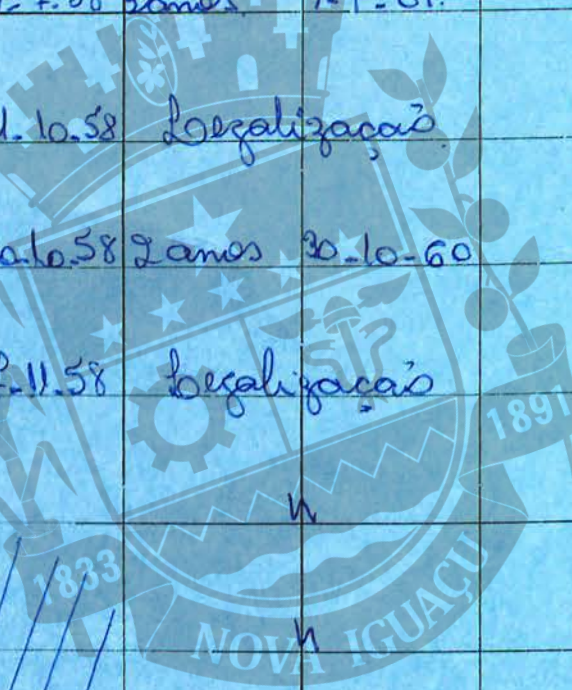 2 anos
1.10.58 Legalização
0.10.58 2 anos 30-10-60
11.58 Legalização
"
1891
1833
"
NOVA IGUAÇU